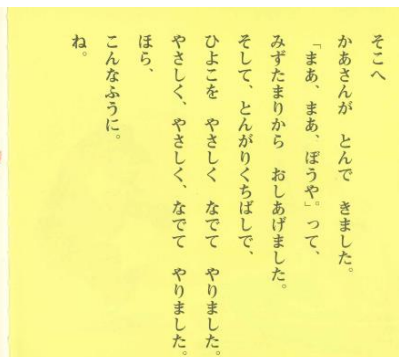 そこへ
かあさんが　とんで　きました。
「まあ、まあ、ぼうや。」って、
みずたまりから　おしあげました。
そして、とんがりくちばしで、
ひよこを　やさしく　なでて　やりました。
やさしく、やさしく、なでて　やりました。
ほら、
こんなふうに。
ね。